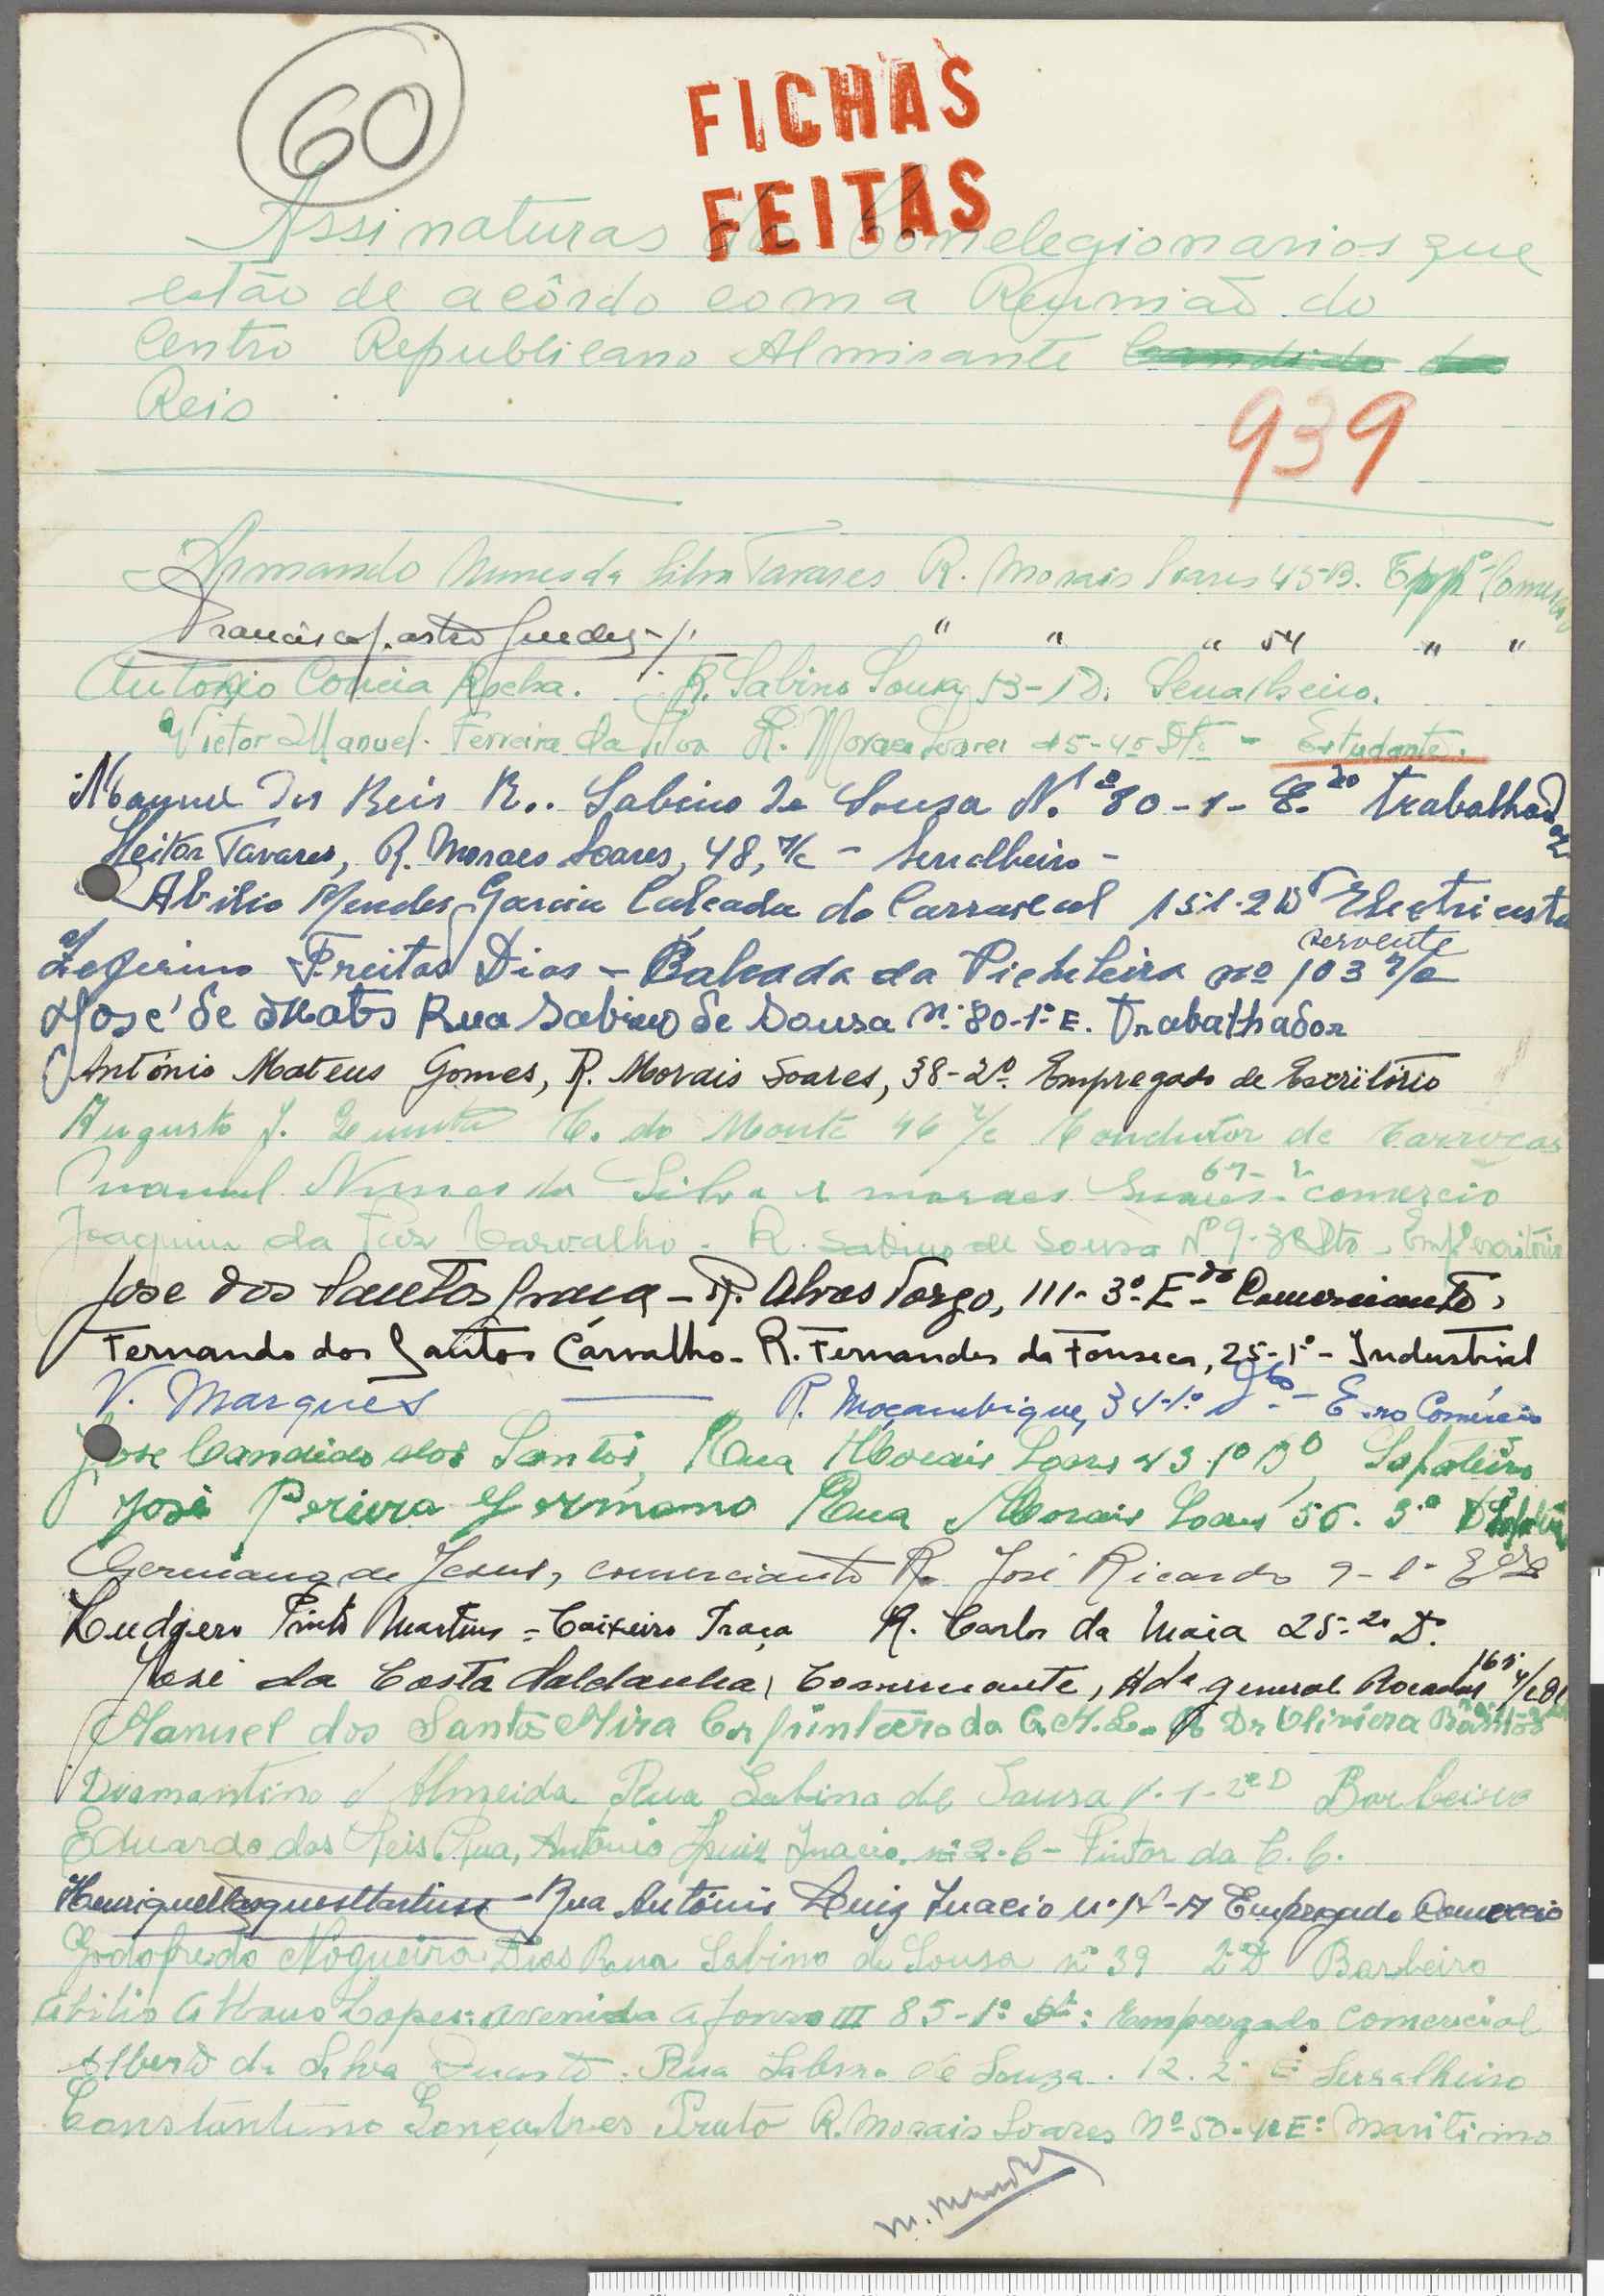 60
FICHAS
FEITAS
Assinaturas de Comelegionarios que
estão de acôrdo com a Reunião do
Centro Republicano Almirante
Reis
939
Armando Nunes da Silva Tavares R. Morais Soares 45-B. Empº Comercio
Francisco Castro Guedes " " " 54 " "
Antonio Correia Rocha. R. Sabino Sousa 53-1D. Serralheiro.
Victor Manuel Ferreira da Silva R. Moraes Soares 45-4º Dtº - Estudante.
Manuel dos Reis R.. Sabino de Sousa N.º 80-1-E.do trabalhador
Heitor Tavares, R. Moraes Soares, 48, r/c - Serralheiro -
Abilio Mendes Garcia Calcada do Carrascal 151-2D Electricista
servente
Zeferino Freitas Dias - Calcada da Picheleira nº 103 r/c
José de Matos Rua Sabino de Sousa n.º 80-1º E. Trabalhador
António Mateus Gomes, R. Morais Soares, 38-2º. Empregado de Escritório
Augusto J. C. do Monte 46 r/c Condutor de Carroças
67-
Manuel Nunes da Silva R moraes Soares comercio
Joaquim da Paz Carvalho - R. Sabino de Sousa Nº 9-3º Dtº, Empº escritório
José dos Santos Graça - R. Alves Torgo, 111-3º-Edo Comerciante,
Fernando dos Santos Carvalho - R. Fernandes da Fonseca, 25-1º - Industrial
V. Marques R. Moçambique, 34-1º Dto - E. no Comércio
José Candido dos Santos, Rua Morais Soares 43-1º Dº, Sapateiro
José Pereira Germano Rua Morais Soares 56. 3º D
Germano de Jesus, comerciante R. José Ricardo 9-1º Edo
Ludgero Pinto Martins = Caixeiro Praça R. Carlos da Maia 25-2º Dº
José da Costa Saldanha, Comerciante, Ada general Rocadas 165 r/c
Manuel dos Santos Mira Carpinteiro da C.M.L. R Dr Oliviera
Diamantino d'Almeida Rua Sabino de Sousa 1-1-2º D Barbeiro
Eduardo dos Reis Rua, António Luiz Inacio, nº 2-6 - Pintor da C.C.
Henrique Marques Martins - Rua António Luiz Inacio nº 14-A Empregado Comercio
Godofredo Nogueira Dias Rua Sabino de Sousa nº 39 2ºD Barbeiro
Abilio Lopes: avenida Afonso III 85-1º Dto: Empregado comercial
Alberto da Silva Duarte. Rua Sabino de Souza. 12. 2º E Serralheiro
Constantino Gonçalves Prato R. Morais Soares Nº 50-4º E: Maritimo
M. Mendes